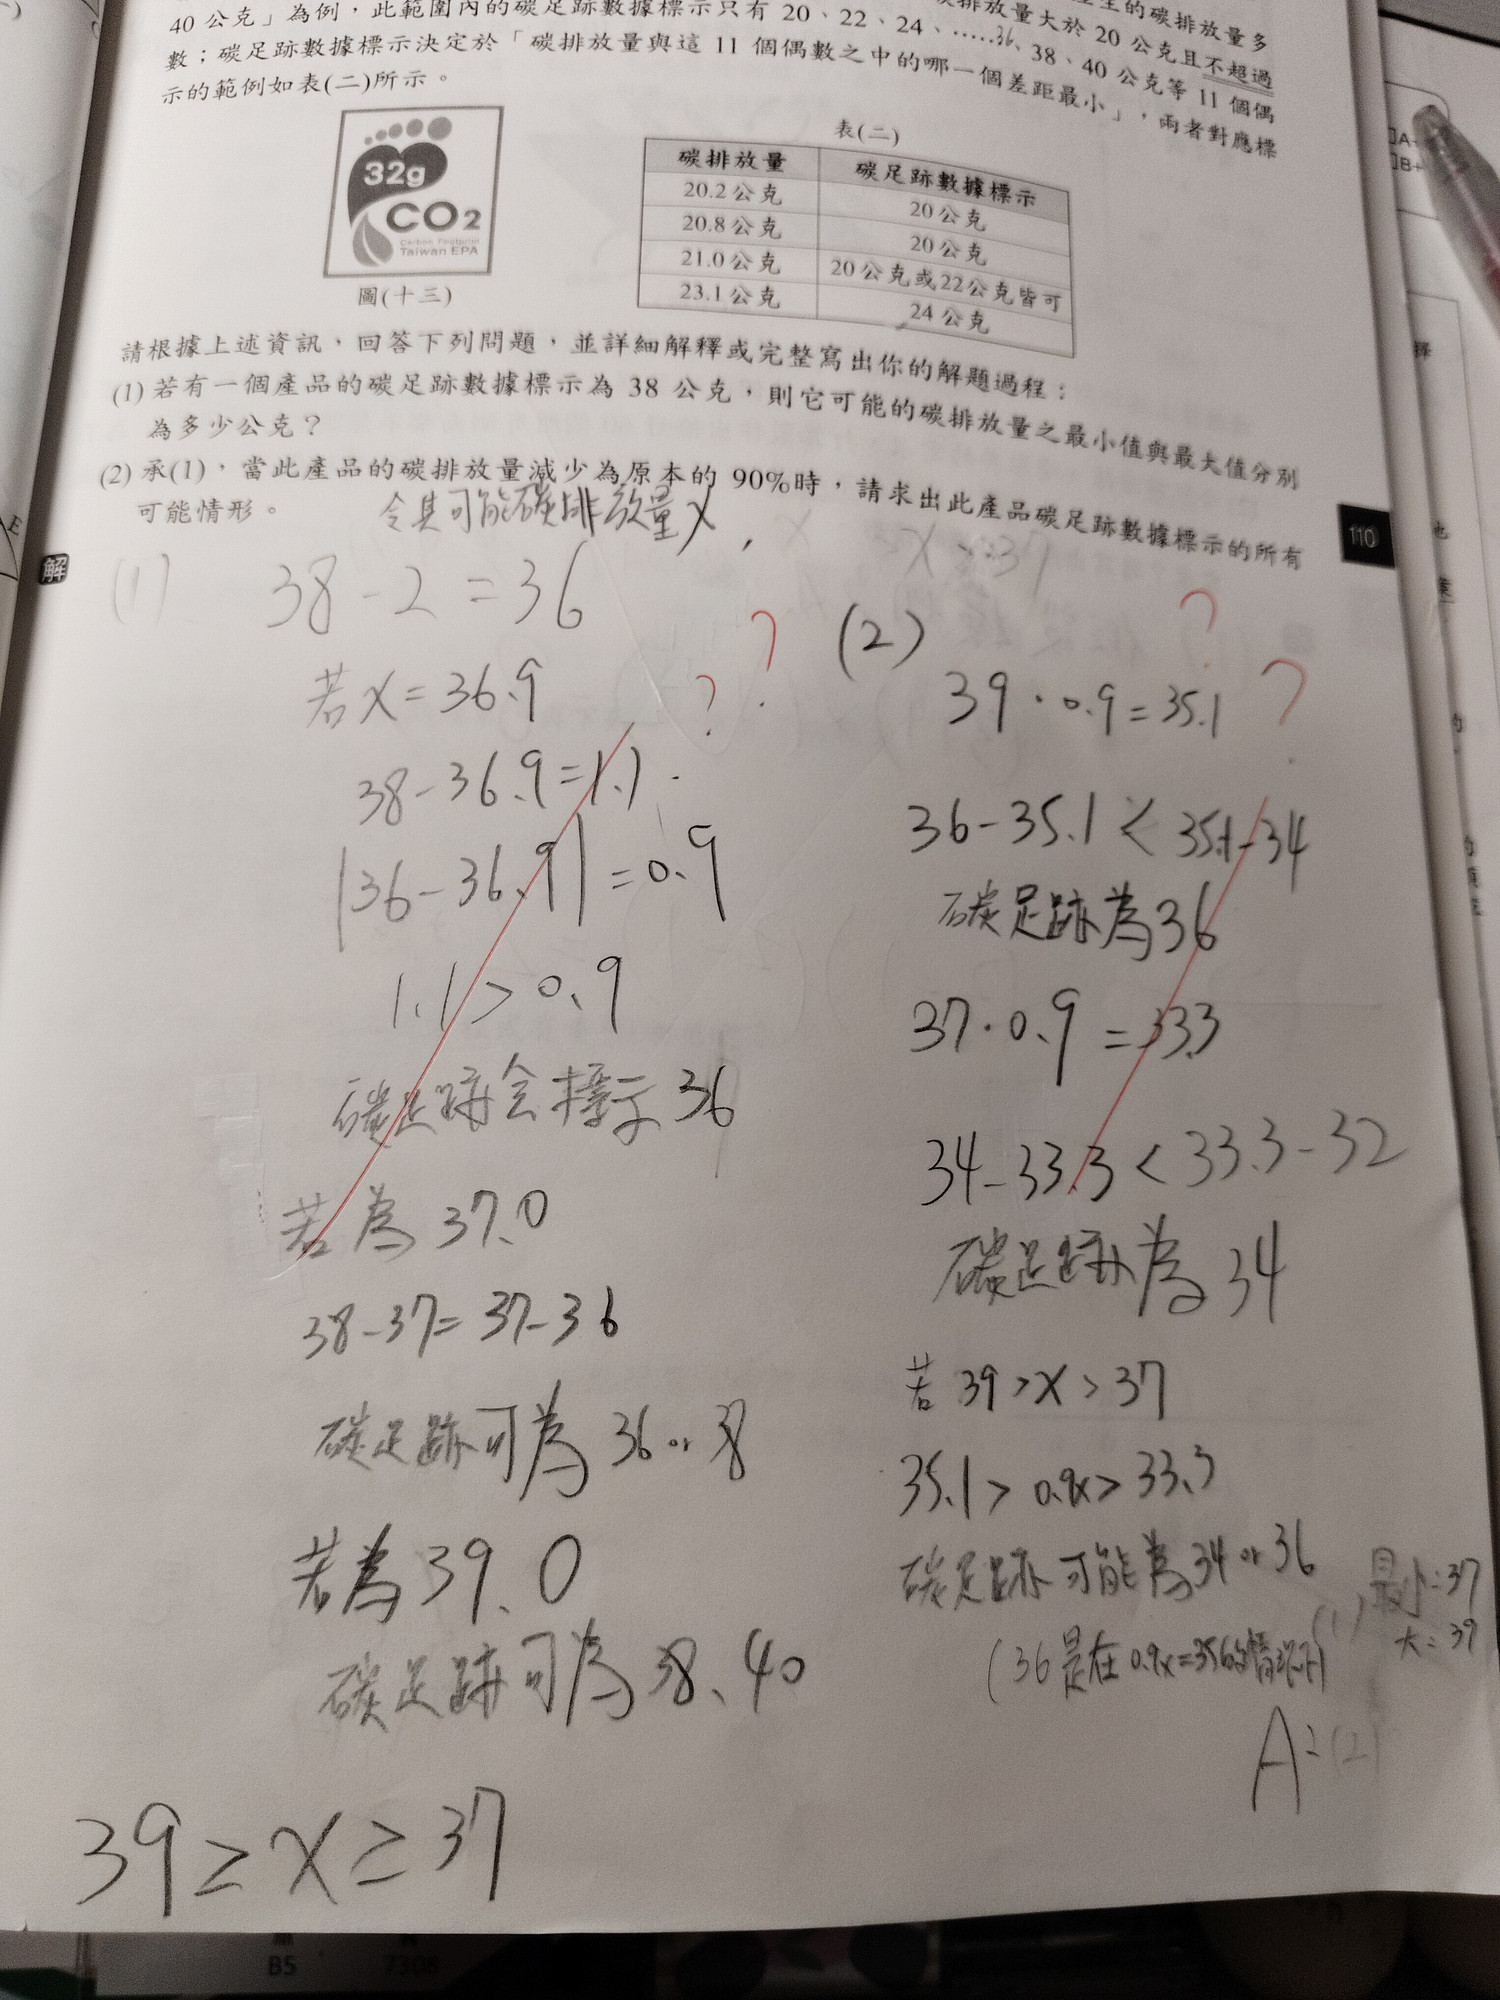 生的碳排放量多
40 公克」為例,此範圍內的碳足跡數據標示只有 20、22、24、……36、38、40 公克等 11 個偶
碳排放量大於 20 公克且不超過
數;碳足跡數據標示決定於「碳排放量與這 11 個偶數之中的哪一個差距最小」,兩者對應標
示的範例如表(二)所示。
32g
CO2
Carbon Footprint
Taiwan EPA
圖(十三)
表(二)
碳排放量 碳足跡數據標示
20.2公克 20公克
20.8公克 20公克
21.0公克 20公克或22公克皆可
23.1公克 24公克
請根據上述資訊,回答下列問題,並詳細解釋或完整寫出你的解題過程:
(1) 若有一個產品的碳足跡數據標示為 38 公克,則它可能的碳排放量之最小值與最大值分別
為多少公克?
(2) 承(1),當此產品的碳排放量減少為原本的 90%時,請求出此產品碳足跡數據標示的所有
可能情形。
110
解
令其可能碳排放量x,
(1) 38-2=36
若x=36.9
38-36.9=1.1
|36-36.9|=0.9
1.1>0.9
碳足跡会標示36
若為37.0
38-37=37-36
碳足跡可為36 or 38
若為39.0
碳足跡可為38、40
39≥x≥37
(2)
39·0.9=35.1
36-35.1<35.1-34
碳足跡為36
37·0.9=33.3
34-33.3<33.3-32
碳足跡為34
若39>x>37
35.1>0.9x>33.3
碳足跡可能為34 or 36
(36是在0.9x=35的情況下)
(1) 最小:37
大:39
A:(2)
B5
7308